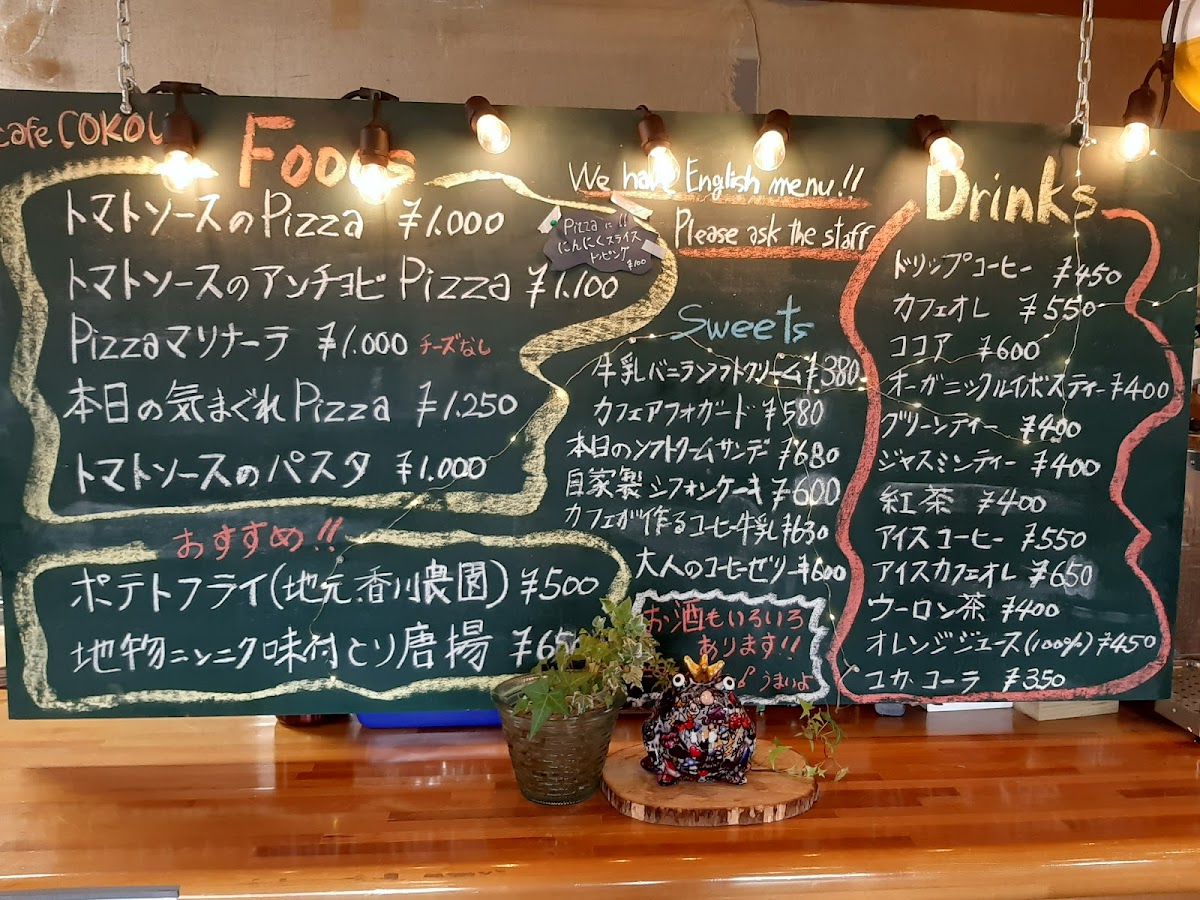 cafe COKOU
Foods
トマトソースのPizza ¥1.000
トマトソースのアンチョビPizza ¥1.100
Pizzaマリナーラ ¥1.000 チーズなし
本日の気まぐれPizza ¥1.250
トマトソースのパスタ ¥1.000
おすすめ!!
ポテトフライ(地元.香川農園) ¥500
地物ニンニク味付とり唐揚 ¥650
Pizzaに!!
にんにくスライス
トッピング
¥100
We have English menu!!
Please ask the staff
Sweets
牛乳バニラソフトクリーム ¥380
カフェアフォガード ¥580
本日のソフトクリームサンデー ¥680
自家製シフォンケーキ ¥600
カフェが作るコーヒー牛乳 ¥630
大人のコーヒーゼリー ¥600
お酒もいろいろ
あります!!
うまいよ
Drinks
ドリップコーヒー ¥450
カフェオレ ¥550
ココア ¥600
オーガニックルイボスティー ¥400
グリーンティー ¥400
ジャスミンティー ¥400
紅茶 ¥400
アイスコーヒー ¥550
アイスカフェオレ ¥650
ウーロン茶 ¥400
オレンジジュース(100%) ¥450
コカ.コーラ ¥350